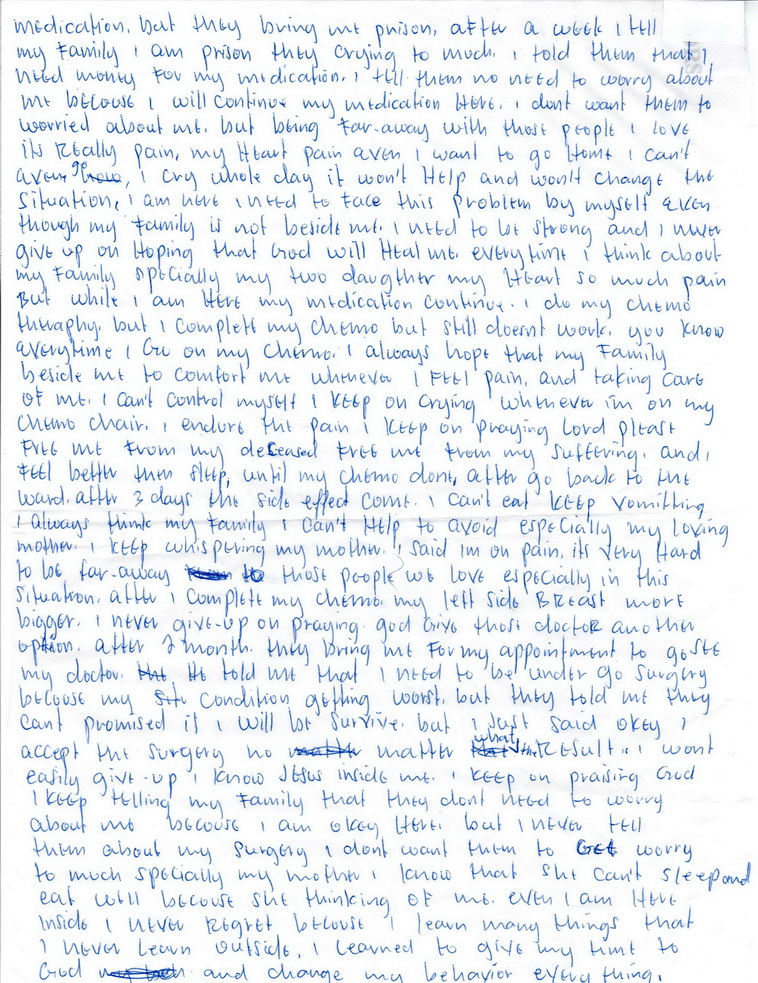 medication. but they bring me prison, after a week I tell
my Family I am prison they crying to much. I told them that I
need money for my medication. I tell them no need to worry about
me because I will continue my medication Here. I dont want them to
worried about me. but being Far-away with those people I love
its Really pain, my Heart pain even I want to go Home I can't
even go, I cry whole day it won't Help and won't change the
situation, I am here I need to Face this problem by myself even
though my Family is not beside me. I need to be strong and I never
give up on Hoping that God will Heal me. everytime I think about
my Family specially my two daugther my Heart so much pain
But while I am Here my medication continue. I do my chemo
theraphy. but I complete my chemo but still doesnt work. you know
everytime I Go on my Chemo. I always hope that my Family
beside me to comfort me whenever I FEEL pain, and taking care
of me. I can't control myself I KEEP on crying whenever im on my
chemo chair. I endure the pain I KEEP on praying Lord please
Free me From my deceased Free me from my suffering. and I
FEEL better then sleep, until my chemo done, after go back to the
ward. after 3 days the side effect come. I can't eat KEEP vomitting
I always think my Family I can't Help to avoid especially my loving
mother. I KEEP whispering my mother. I said Im on pain, its very Hard
to be far-away those people we love especially in this
situation. after I complete my chemo. my left side Breast more
bigger. I never give-up on praying. god Give those doctor another
option. after 2 month. they bring me For my appointment to go see
my doctor. He told me that I need to be under go surgery
because my condition getting worst. but they told me they
cant promised if I will be survive. but I Just said okey I
accept the surgery no matter what the Result.. I wont
easily give-up I know Jesus inside me. I KEEP on praising God
I KEEP telling my Family that they dont need to worry
about me because I am okey Here. but I never tell
them about my surgery I dont want them to worry
to much specially my mother I know that she can't sleep and
eat well because she thinking of me. even I am Here
Inside I never Regret because I learn many things that
I never Learn outside. I learned to give my time to
God and change my behavior every thing.